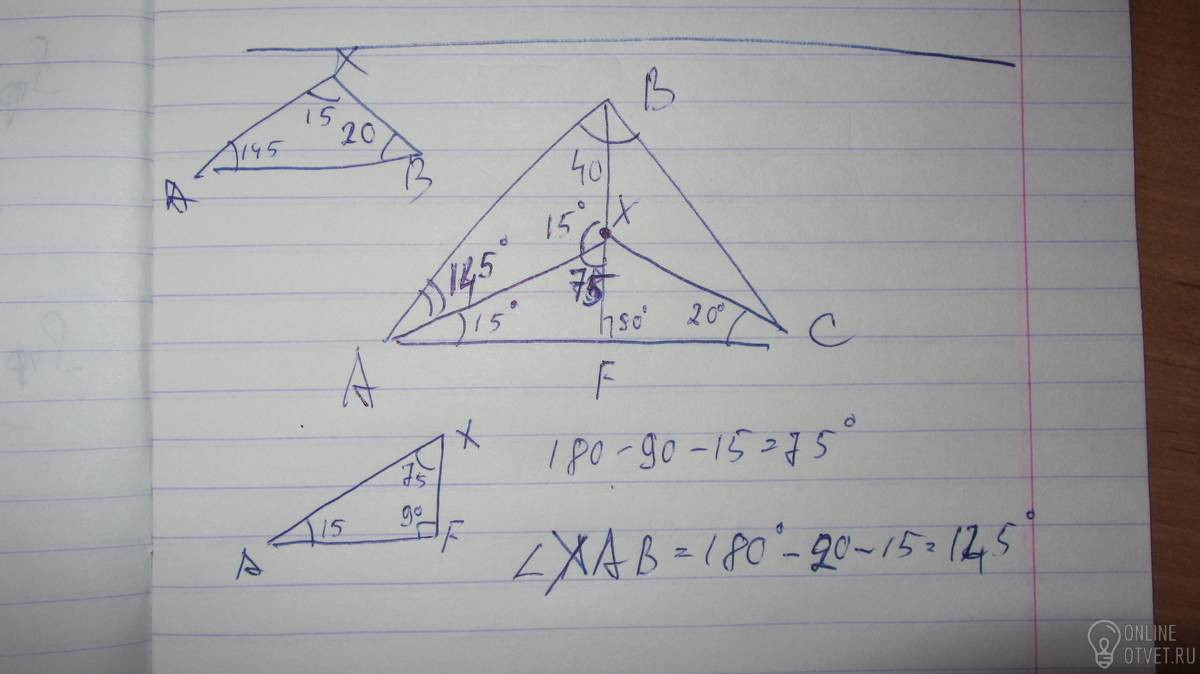 X
15
20
145
A
B
B
40
15° X
145°
75
15°
90°
20°
A
F
C
X
75
15
90
A
F
180-90-15=75°
∠XAB=180°-20-15=145°
ONLINE
OTVET.RU